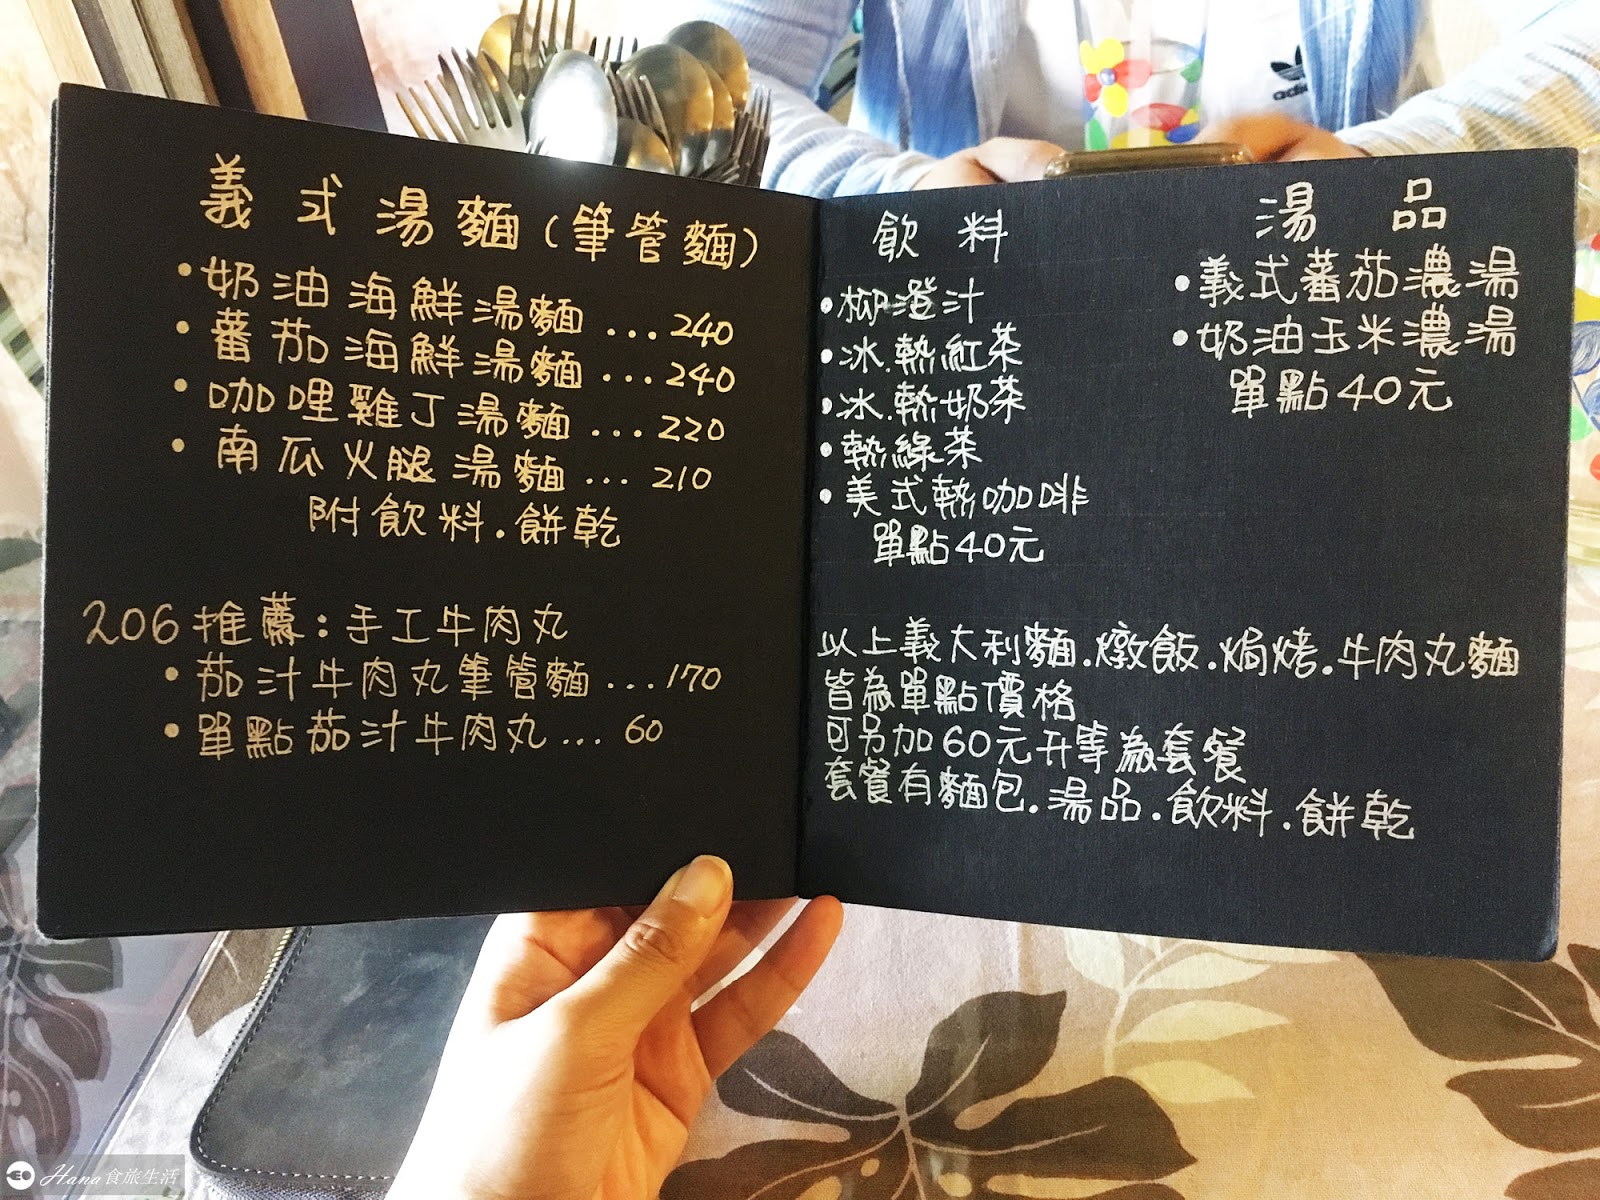 義式湯麵(筆管麵)
•奶油海鮮湯麵...240
•蕃茄海鮮湯麵...240
•咖哩雞丁湯麵...220
•南瓜火腿湯麵...210
附飲料.餅乾
206推薦:手工牛肉丸
•茄汁牛肉丸筆管麵...170
•單點茄汁牛肉丸...60
飲料
•柳澄汁
•冰.熱紅茶
•冰.熱奶茶
•熱綠茶
•美式熱咖啡
單點40元
湯品
•義式蕃茄濃湯
•奶油玉米濃湯
單點40元
以上義大利麵.燉飯.焗烤.牛肉丸麵
皆為單點價格
可另加60元升等為套餐
套餐有麵包.湯品.飲料.餅乾
adi
Hana食旅生活